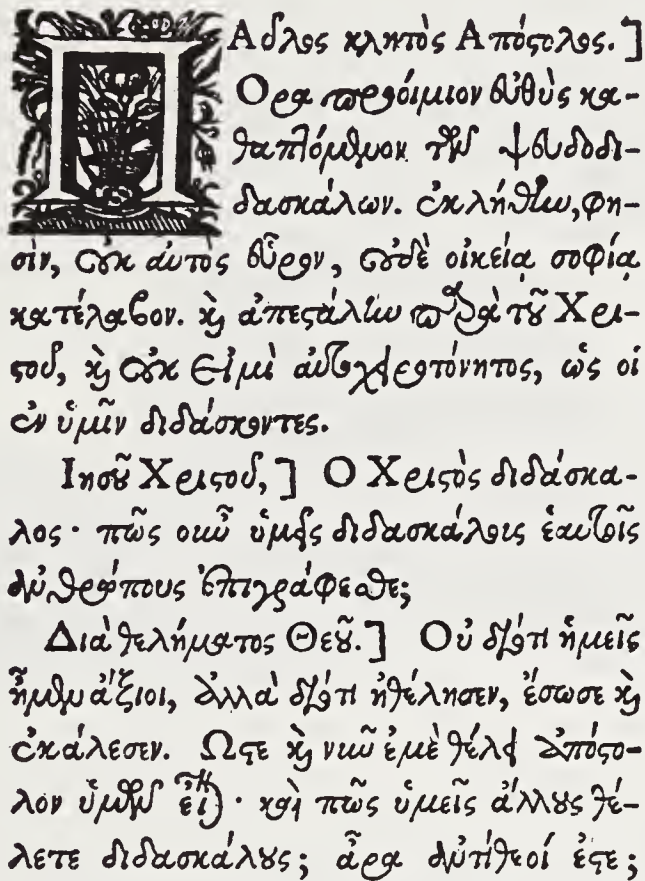 ΠΑῦλος κλητὸς Απόστολος.]
Ορα προοίμιον εὐθὺς κα-
θαπτόμενον τῶν ψευδοδι-
δασκάλων. ἐκλήθην, φη-
σὶν, οὐκ αὐτὸς εὗρον, οὐδὲ οἰκείᾳ σοφίᾳ
κατέλαβον. καὶ ἀπεστάλην παρὰ τοῦ Χρι-
στοῦ, καὶ οὐκ εἰμὶ αὐτοχειροτόνητος, ὡς οἱ
ἐν ὑμῖν διδάσκοντες.
Ιησοῦ Χριστοῦ,] Ο Χριστὸς διδάσκα-
λος· πῶς οὖν ὑμεῖς διδασκάλοις ἑαυτοῖς
ἀνθρώπους ἐπιγράφεσθε;
Διὰ θελήματος Θεοῦ.] Οὐ διότι ἡμεῖς
ἦμεν ἄξιοι, ἀλλὰ διότι ἠθέλησεν, ἔσωσε καὶ
ἐκάλεσεν. Ωστε καὶ νῦν ἐμὲ θέλει ἀπόστο-
λον ὑμῶν εἶναι· καὶ πῶς ὑμεῖς ἄλλους θέ-
λετε διδασκάλους; ἆρα ἀντίθεοί ἐστε;